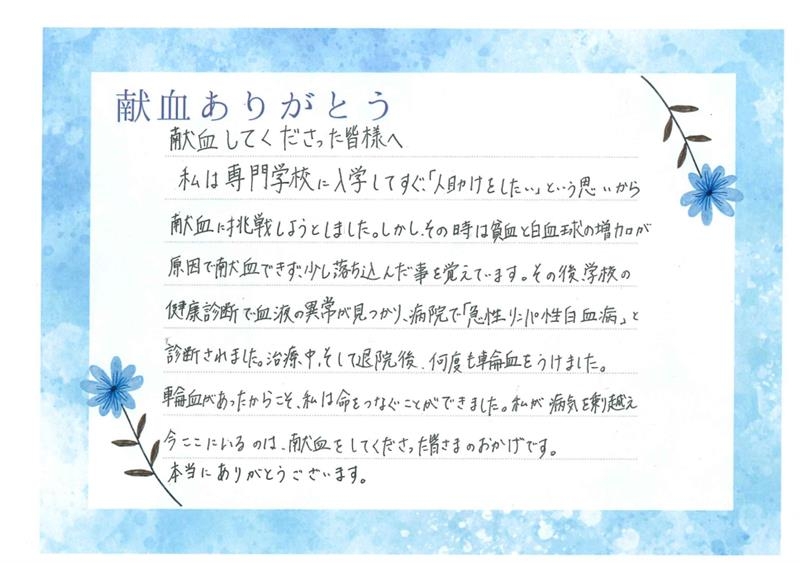 献血ありがとう
献血してくださった皆様へ
私は専門学校に入学してすぐ、「人助けをしたい」という思いから
献血に挑戦しようとしました。しかし、その時は貧血と白血球の増加が
原因で献血できず、少し落ち込んだ事を覚えています。その後、学校の
健康診断で血液の異常が見つかり、病院で「急性リンパ性白血病」と
診断されました。治療中、そして退院後、何度も輸血をうけました。
輸血があったからこそ、私は命をつなぐことができました。私が病気を乗り越え
今ここにいるのは、献血をしてくださった皆さまのおかげです。
本当にありがとうございます。